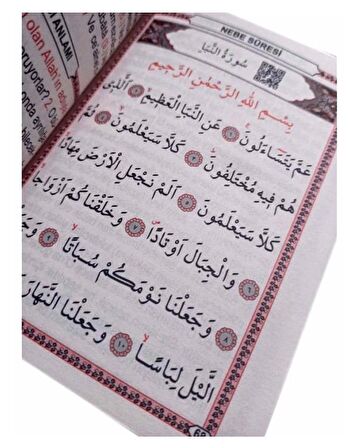 NEBE SÛRESİ
سُورَةُ النَّبَأِ
بِسْمِ اللّٰهِ الرَّحْمٰنِ الرَّحِيمِ
عَمَّ يَتَسَٓاءَلُونَ ١ عَنِ النَّبَأِ الْعَظِيمِ ٢ اَلَّذ۪ي
هُمْ فِيهِ مُخْتَلِفُونَ ٣ كَلَّا سَيَعْلَمُونَ ٤ ثُمَّ
كَلَّا سَيَعْلَمُونَ ٥ اَلَمْ نَجْعَلِ الْاَرْضَ مِهَادًا
٦ وَالْجِبَالَ اَوْتَادًا ٧ وَخَلَقْنَاكُمْ اَزْوَاجًا
٨ وَجَعَلْنَا نَوْمَكُمْ سُبَاتًا ٩ وَجَعَ
الَّيْلَ لِبَاسًا ١٠ وَجَعَلْنَا النَّهَارَ
ANLAMI
olan Allah'ın
oruyorlar? 2. O